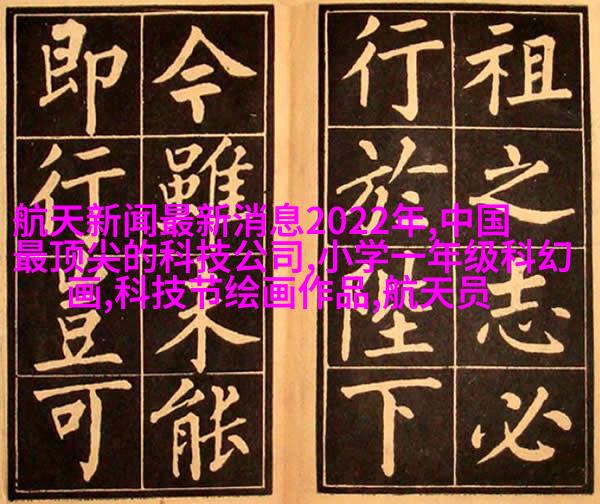 祖之志必
行於陛下
今雖未能
即行豈可
航天新闻最新消息2022年,中国
最顶尖的科技公司,小学一年级科幻
画,科技节绘画作品,航天员